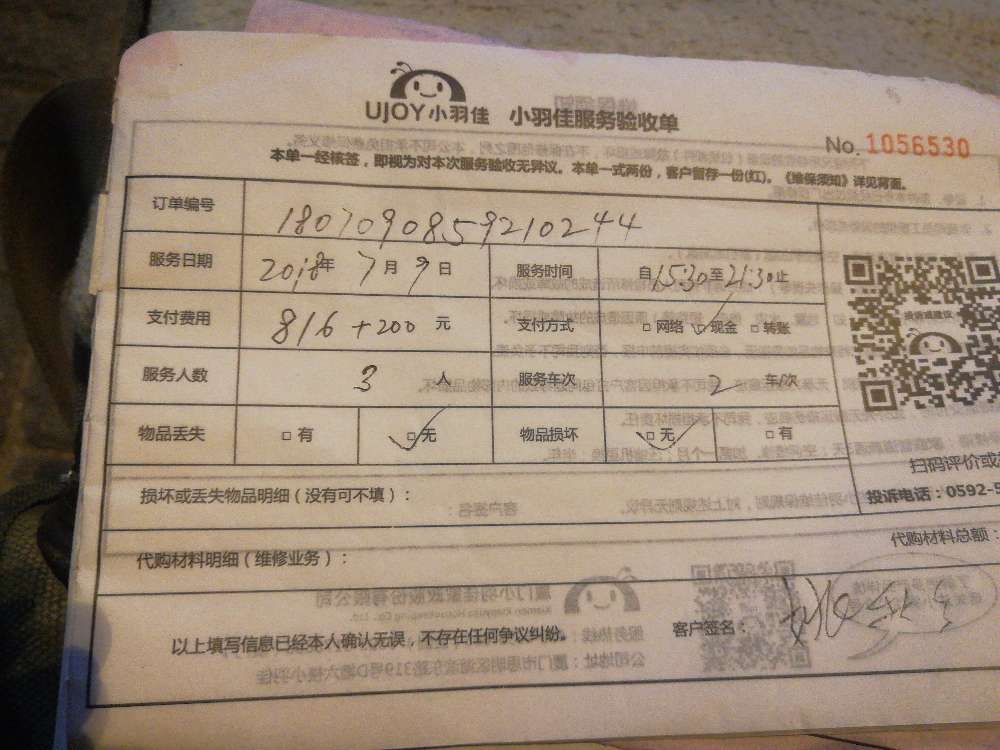 UJOY小羽佳 小羽佳服务验收单
No. 1056530
本单一经核签，即视为对本次服务验收无异议。本单一式两份，客户暂存一份(红)。《维保须知》详见背面。
订单编号 1807090859210244
服务日期 2018年 7月 9日 服务时间 自15:30至21:30止
支付费用 816+200 元 支付方式 □网络 □现金 □转账
服务人数 3 人 服务车次 2 车/次
物品丢失 □有 □无 物品损坏 □无 □有
扫码评价或
损坏或丢失物品明细（没有可不填）：
投诉电话：0592-5
代购材料明细（维修业务）：
代购材料总额：
以上填写信息已经本人确认无误，不存在任何争议纠纷。 客户签名：